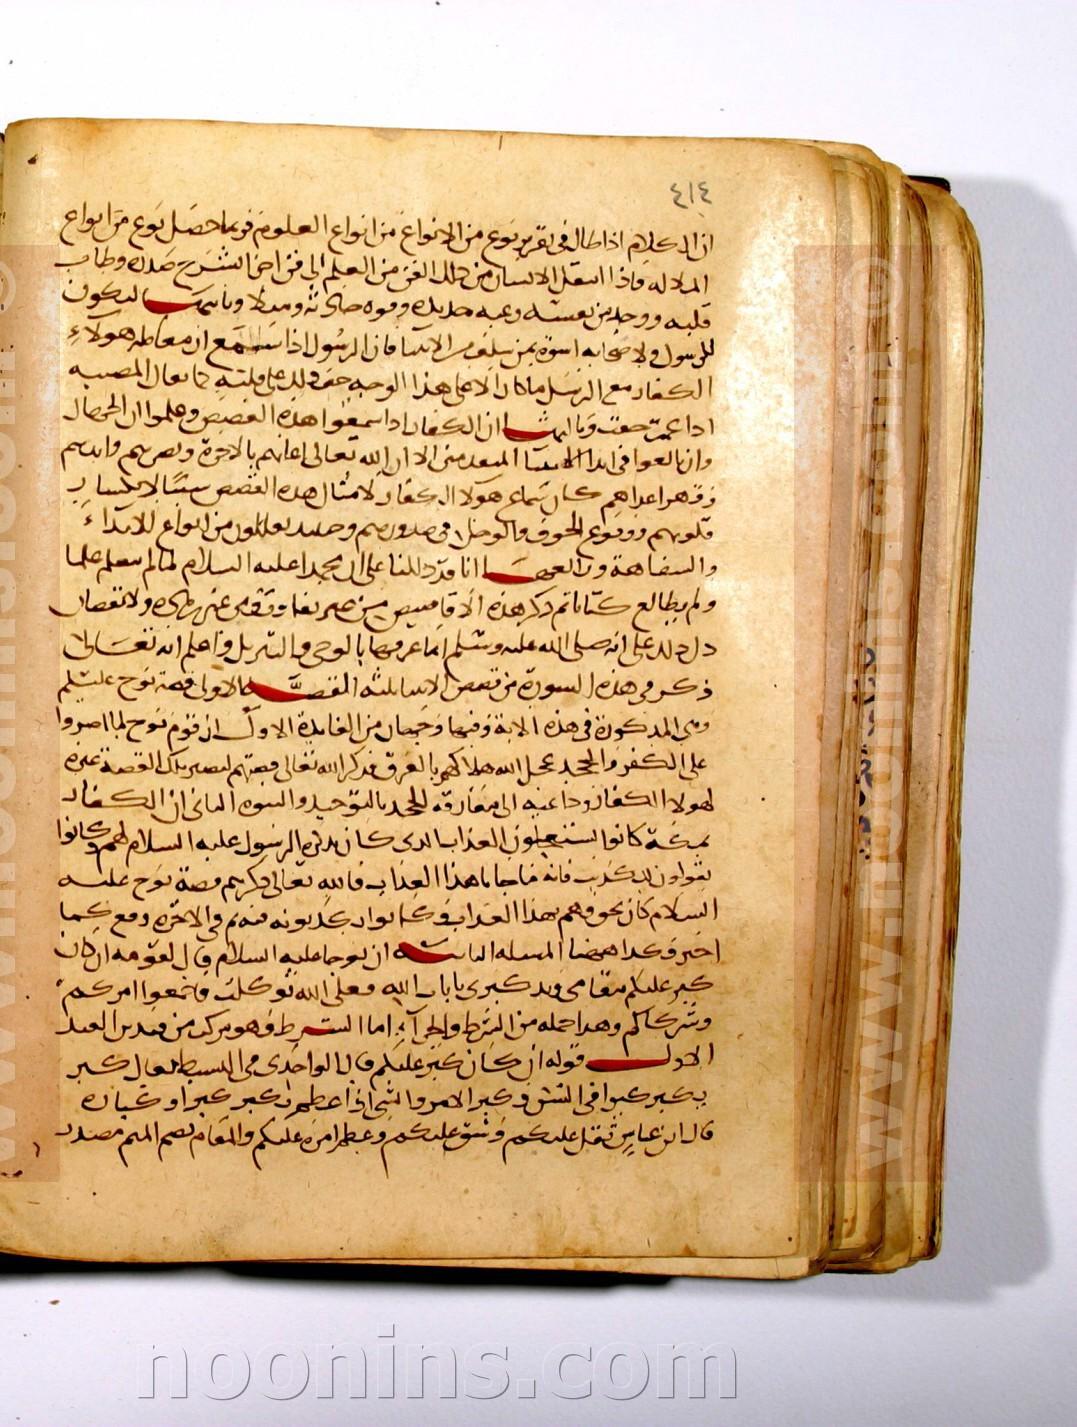 ٤١٤
ان الكلام اذا طال فى تقرير نوع من الانواع من انواع العلوم فربما حصل نوع من انواع
الملالة فاذا انتقل الانسان من ذلك الفن من العلم الى فن اخر انشرح صدره وطاب
قلبه ووجد من نفسه رغبة جديدة وقوة حادثة وميلا وثانيها ليكون
للرسول ولاصحابه اسوة بمن سلف من الانبيا فان الرسول اذا سمع ان معاملة هولاء
الكفار مع الرسل ما كان الا على هذا الوجه خف ذلك على قلبه كما يقال المصيبة
اذا عمت خفت وثالثها ان الكفار اذا سمعوا هذه القصص وعلموا ان الجهال
وان بالغوا فى ايذا الانبيا المتقدمين الا ان الله تعالى اعانهم بالاخرة ونصرهم وايدهم
وقهر اعداهم كان سماع هولا الكفار لامثال هذه القصص سببا لانكسار
قلوبهم ووقوع الخوف والوجل فى صدورهم وحينئذ يقللون من انواع الايذاء
والسفاهة ورابعها انا قد دللنا على ان محمدا عليه السلام لما لم يتعلم علما
ولم يطالع كتابا ثم ذكر هذه الاقاصيص من غير تفاوت ومن غير زيادة ولا نقصان
دل ذلك على انه صلى الله عليه وسلم انما عرفها بالوحى والتنزيل واعلم انه تعالى
ذكر فى هذه السورة من قصص الانبيا ثلثة القصة الاولى قصة نوح عليه السلم
وهى المذكورة فى هذه الاية وفيها وجهان من الفايدة الاول ان قوم نوح لما اصروا
على الكفر والجحد عجل الله هلاكهم بالغرق فذكر الله تعالى قصتهم لتصير تلك القصة عبرة
لهولا الكفار وداعية الى مفارقة الجحد بالتوحيد والنبوة الثانى ان الكفار
بمكة كانوا يستعجلون العذاب الذى كان يذكره الرسول عليه السلام لهم وكانوا
يقولون له كذبت فانه ما جانا هذا العذاب فالله تعالى ذكر لهم قصة نوح عليه
السلام كان يخوفهم بهذا العذاب وكانوا يكذبونه فيه ثم فى الاخرة وقع كما
اخبر فكذا ههنا المسلة الثانية ان نوحا عليه السلام قال لقومه ان كان
كبر عليكم مقامى وتذكيرى بايات الله فعلى الله توكلت فاجمعوا امركم
وشركاكم وهذا جملة من الشرط والجزآء اما الشرط فهو مركب من قيدين القيد
الاول قوله ان كان كبر عليكم قال الواحدى فى البسيط يقال كبر
يكبر كبرا فى السن وكبر الامر والشى اذا عظم يكبر كبرا وكبارة
قال ابن عباس ثقل عليكم وشق عليكم وعظم امره عليكم والمقام بضم الميم مصدر
noonins.com